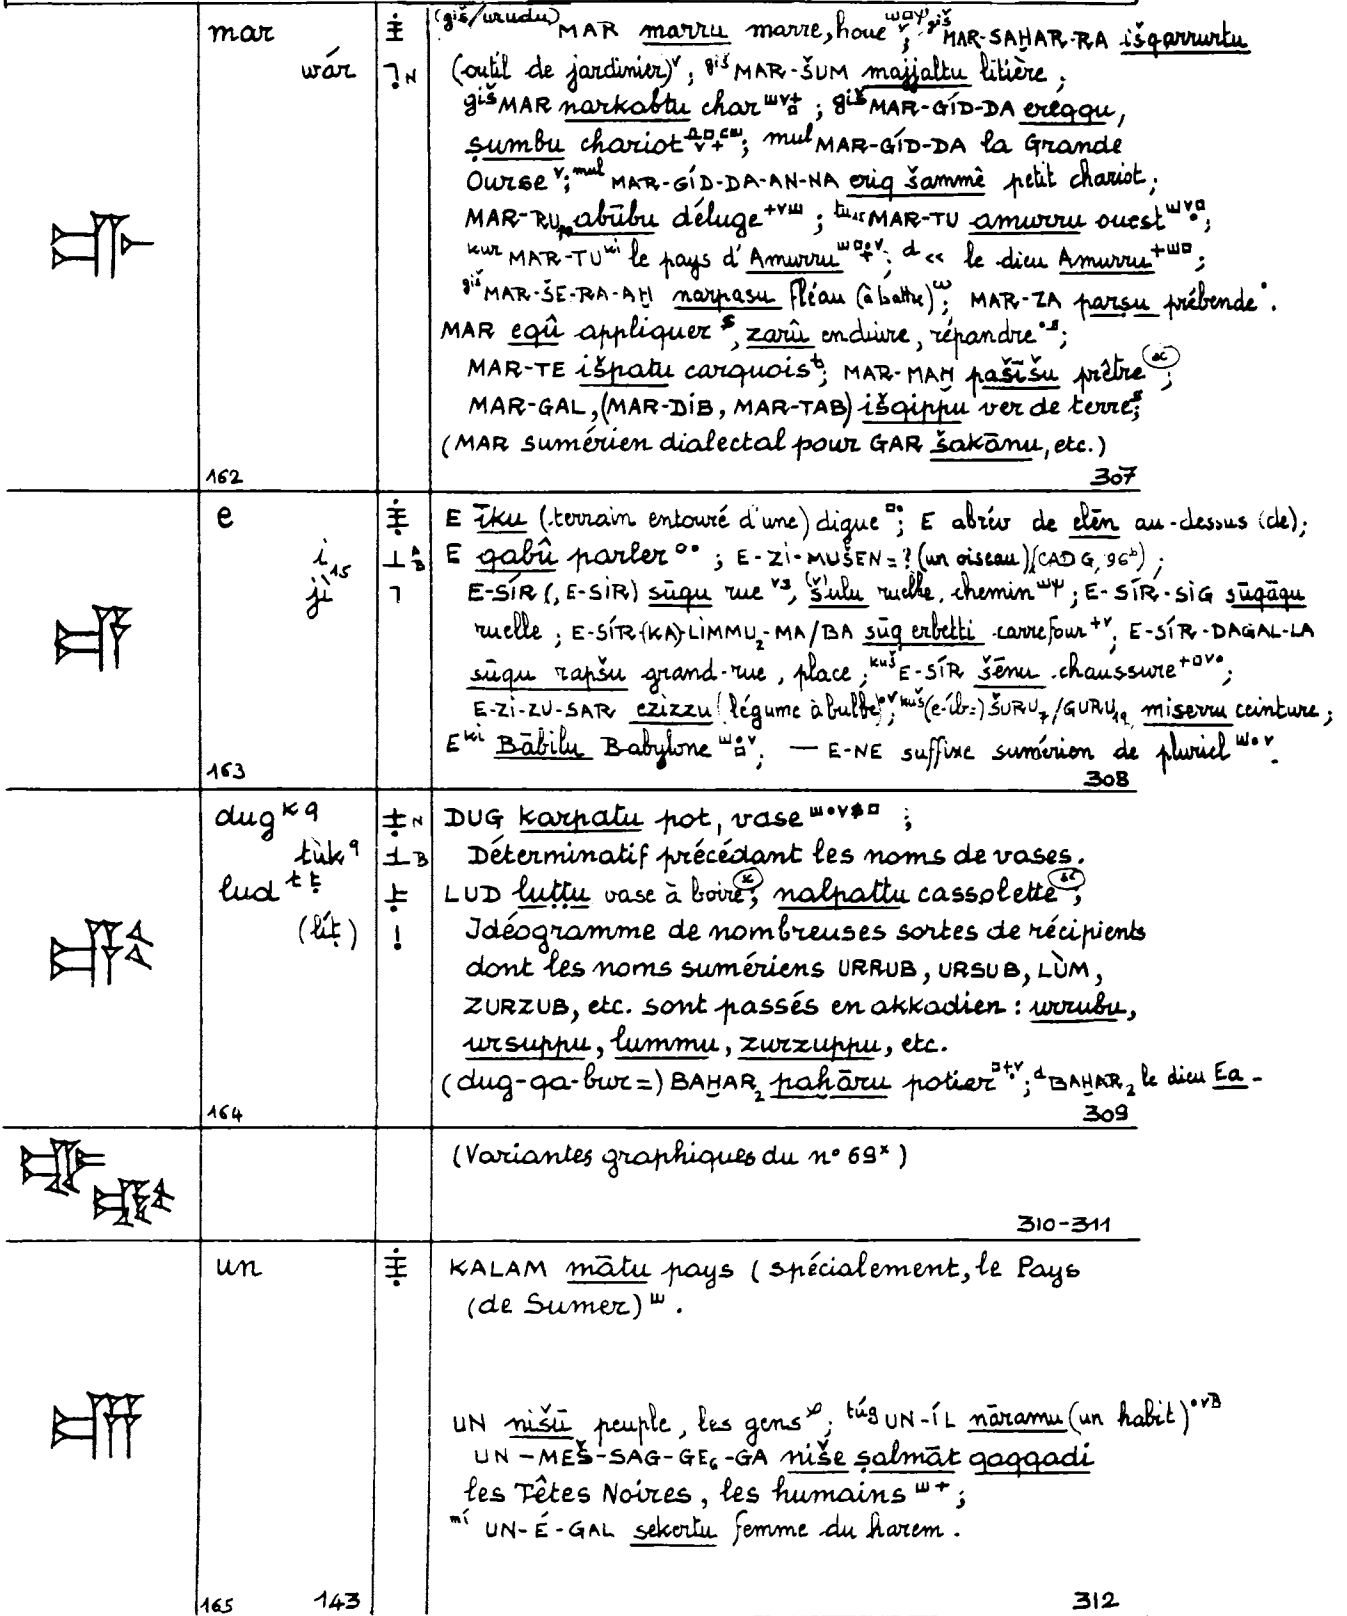 mar (giš/urudu)MAR marru marre, houe ; gišMAR-SAḪAR-RA išqarrurtu
wár (outil de jardinier) ; gišMAR-ŠUM majjaltu litière ;
gišMAR narkabtu char ; gišMAR-GÍD-DA ereqqu,
ṣumbu chariot ; mulMAR-GÍD-DA la Grande
Ourse ; mulMAR-GÍD-DA-AN-NA eriq šammê petit chariot ;
MAR-RU10 abūbu déluge ; MAR-TU amurru ouest ;
kurMAR-TUki le pays d'Amurru ; d << le dieu Amurru ;
gišMAR-ŠE-RA-AḪ narpasu fléau (à battre) ; MAR-ZA parṣu prébende.
MAR eqû appliquer, zarû enduire, répandre ;
MAR-TE išpatu carquois ; MAR-MAḪ pašīšu prêtre ;
MAR-GAL, (MAR-DIB, MAR-TAB) išqippu ver de terre ;
(MAR sumérien dialectal pour GAR šakānu, etc.)
162 307
e E īku (terrain entouré d'une) digue ; E abrév de elēn au-dessus (de) ;
i15 E qabû parler ; E-ZI-MUŠEN = ? (un oiseau) (CAD G, 96b) ;
jì E-SÍR (, E-SIR) sūqu rue, šulu ruelle, chemin ; E-SÍR-SIG sūqāqu
ruelle ; E-SÍR-(KA)-LIMMU2-MA/BA sūq erbetti carrefour ; E-SÍR-DAGAL-LA
sūqu rapšu grand-rue, place ; kušE-SÍR šēnu chaussure ;
E-ZI-ZU-SAR ezizzu (légume à bulbe) ; kuš(e-íb=) ŠURU7/GURU19 miserru ceinture ;
Eki Bābilu Babylone ; — E-NE suffixe sumérien de pluriel.
163 308
dug k q DUG karpatu pot, vase ;
tùk q Déterminatif précédant les noms de vases.
lud t ṭ LUD luṭṭu vase à boire ; nalpattu cassolette ;
(líṭ) Idéogramme de nombreuses sortes de récipients
dont les noms sumériens URRUB, URSUB, LÙM,
ZURZUB, etc. sont passés en akkadien : urrubu,
ursuppu, lummu, zurzuppu, etc.
(dug-qa-bur=) BAḪAR2 paḫāru potier ; dBAḪAR2 le dieu Ea -
164 309
(Variantes graphiques du n° 69x)
310-311
un KALAM mātu pays (spécialement, le Pays
(de Sumer) .
UN nišū peuple, les gens ; túgUN-ÍL nāramu (un habit)
UN-MEŠ-SAG-GE6-GA niše ṣalmāt qaqqadi
les Têtes Noires, les humains ;
míUN-É-GAL sekertu femme du harem.
165 143 312